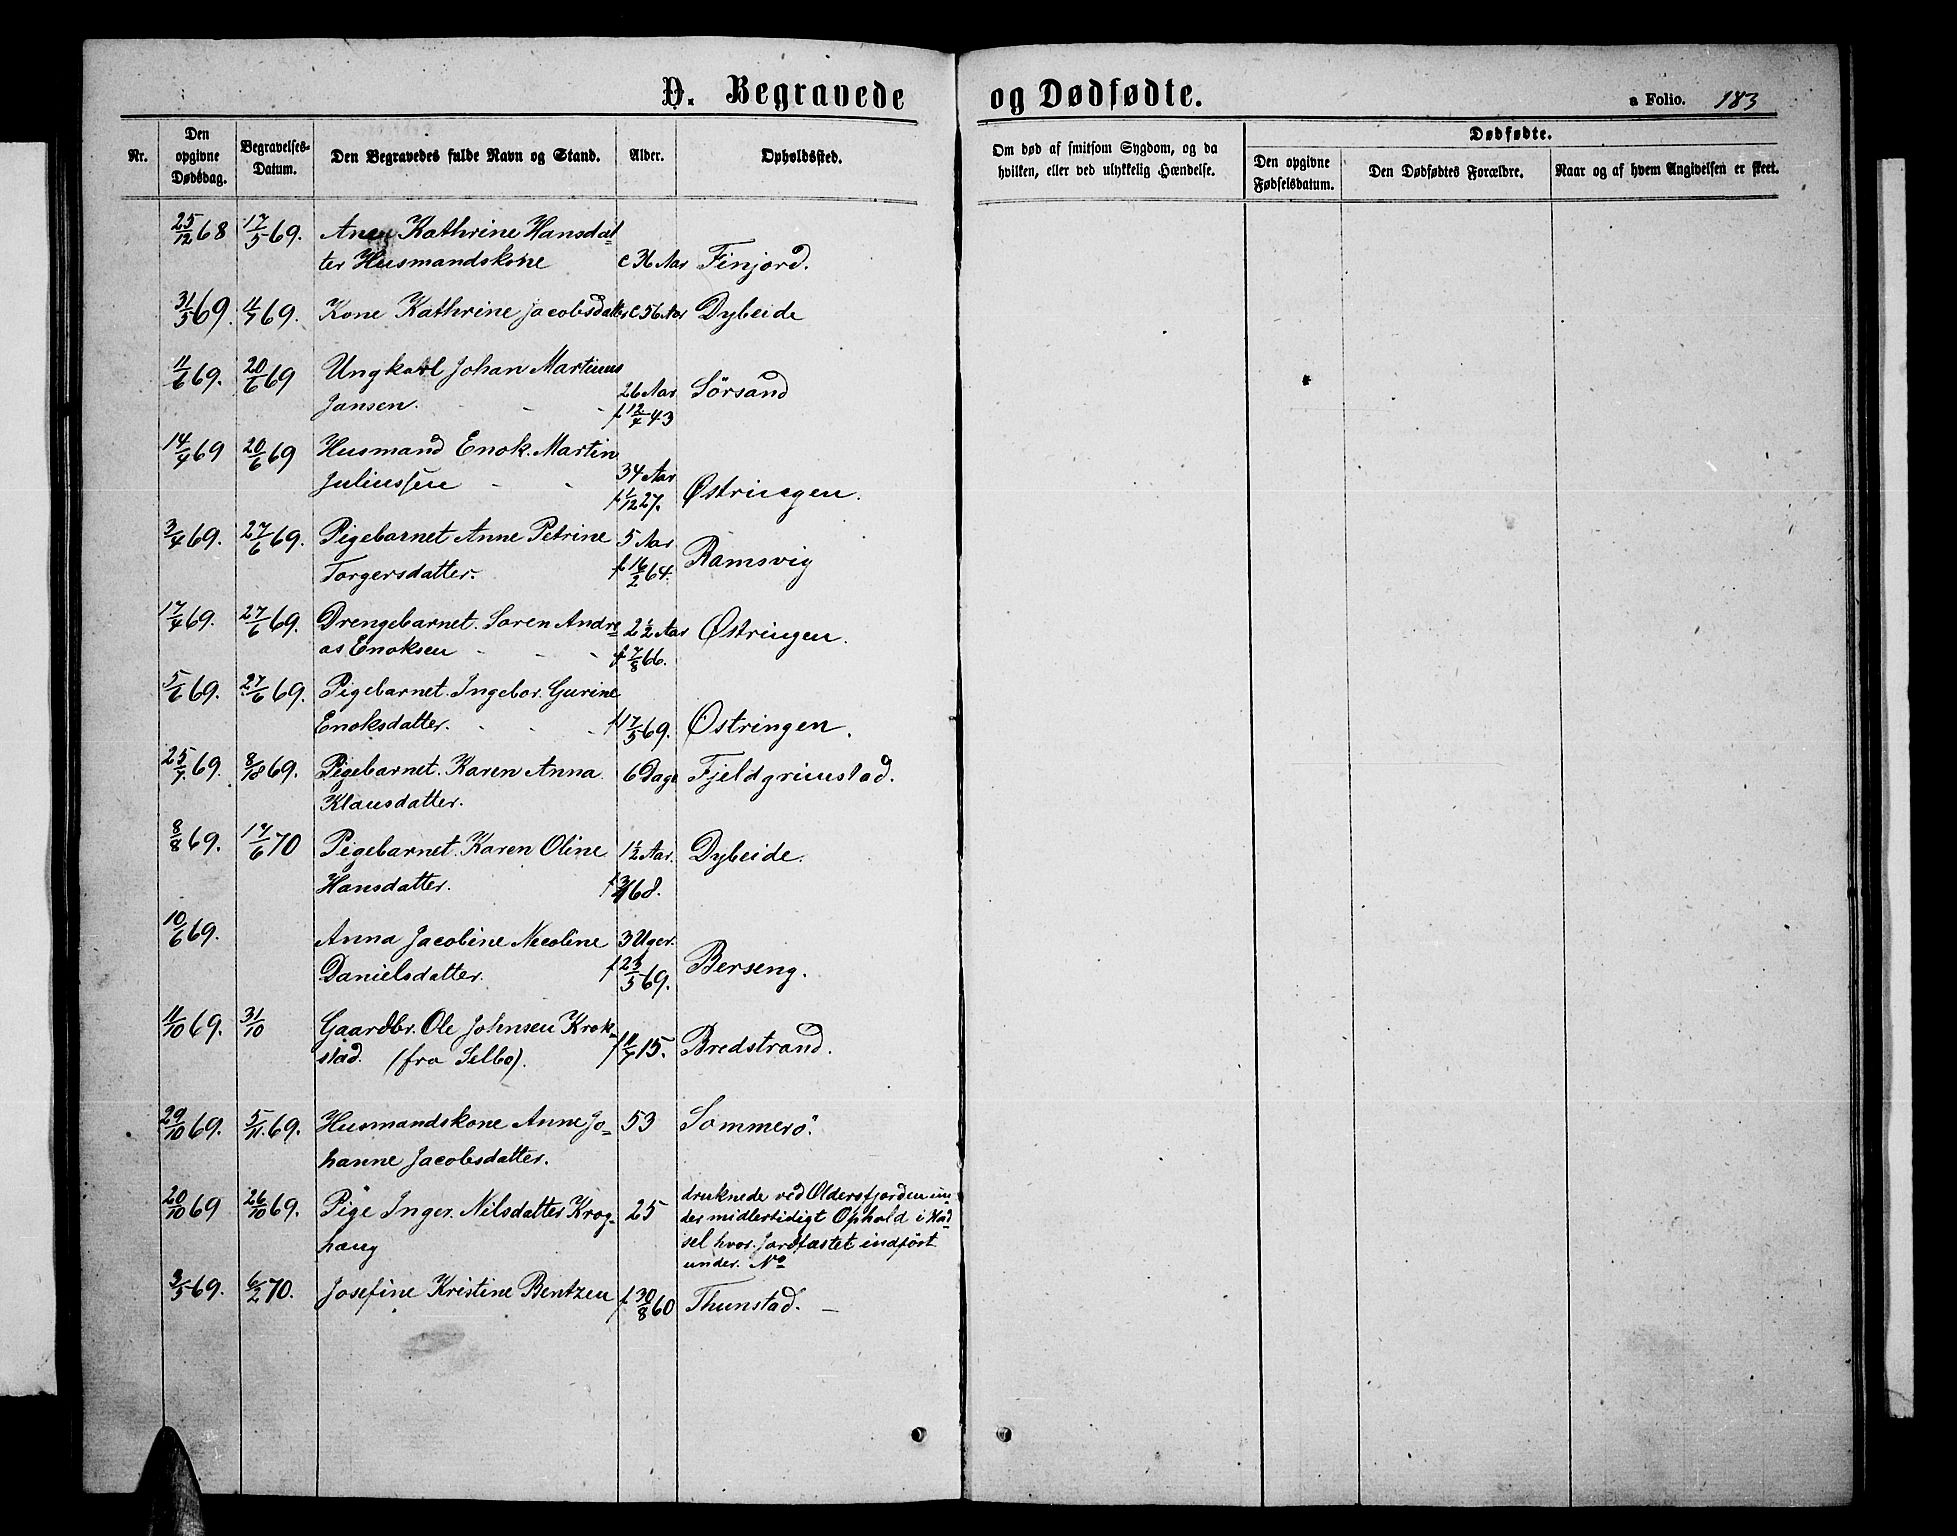 D. Begravede og Dødfødte.
a Folio. 183
Nr.
Den opgivne Dødsdag.
Begravelses-Datum.
Den Begravedes fulde Navn og Stand.
Alder.
Opholdssted.
Om død af smitsom Sygdom, og da hvilken, eller ved ulykkelig Hændelse.
Dødfødte.
Den opgivne Fødselsdatum.
Den Dødfødtes Forældre.
Naar og af hvem Angivelsen er skeet.
25/12 68 17/5 69. Ane Kathrine Hansdat-
ter Husmandskone c 36 Aar Finjord.
31/5 69. 4/7 69. Kone Kathrine Jacobsdatter c 56 Aar Dybeide
11/6 69. 20/6 69 Ungkarl Johan Martinus
Jansen. - - - 26 Aar Sörsand
f 12/4 43
14/4 69 20/6 69 Husmand Enok. Martin
Juliussen - - 34 Aar
f 1/12 27. Østringen.
3/4 69. 27/6 69. Pigebarnet Anne Petrine 5 Aar
Torgersdatter. f 16/2 64. Ramsvig
17/4 69. 27/6 69. Drengebarnet. Soren Andre-
as Enoksen - - - 2 1/2 Aar Østringen.
f 7/8 66.
5/6 69. 27/6 69. Pigebarnet. Ingebor. Gurine
Enoksdatter. - - - f 17/5 69. Østringen.
25/7 69. 8/8 69. Pigebarnet. Karen Anna 6 Dage Fjeldgrimstad.
Klausdatter.
8/8 69. 17/6 70 Pigebarnet. Karen Oline 1 1/2 Aar. Dybeide.
Hansdatter. 68.
10/6 69. Anna Jacobine Necoline 3 Uger.
Danielsdatter. f 23/5 69. Berseng.
11/10 69. 31/10 Gaardbr. Ole Johnsen Krok-
stad. (fra Selbo). 15. Bredstrand.
29/10 69. 5/11. 69. Husmandskone Anne Jo- 53 Sommerö.
hanne Jacobsdatter.
20/10 69 26/10 69. Pige Inger. Nilsdatter Krog- 25
haug
druknede ved Oldersfjorden un-
der midlertidigt Ophold i Had-
sel hvor. Jordfæstet indfört
under. No
3/5 69. 6/2 70. Josefine Kristine Bentzen f. 30/8 60 Thunstad. -